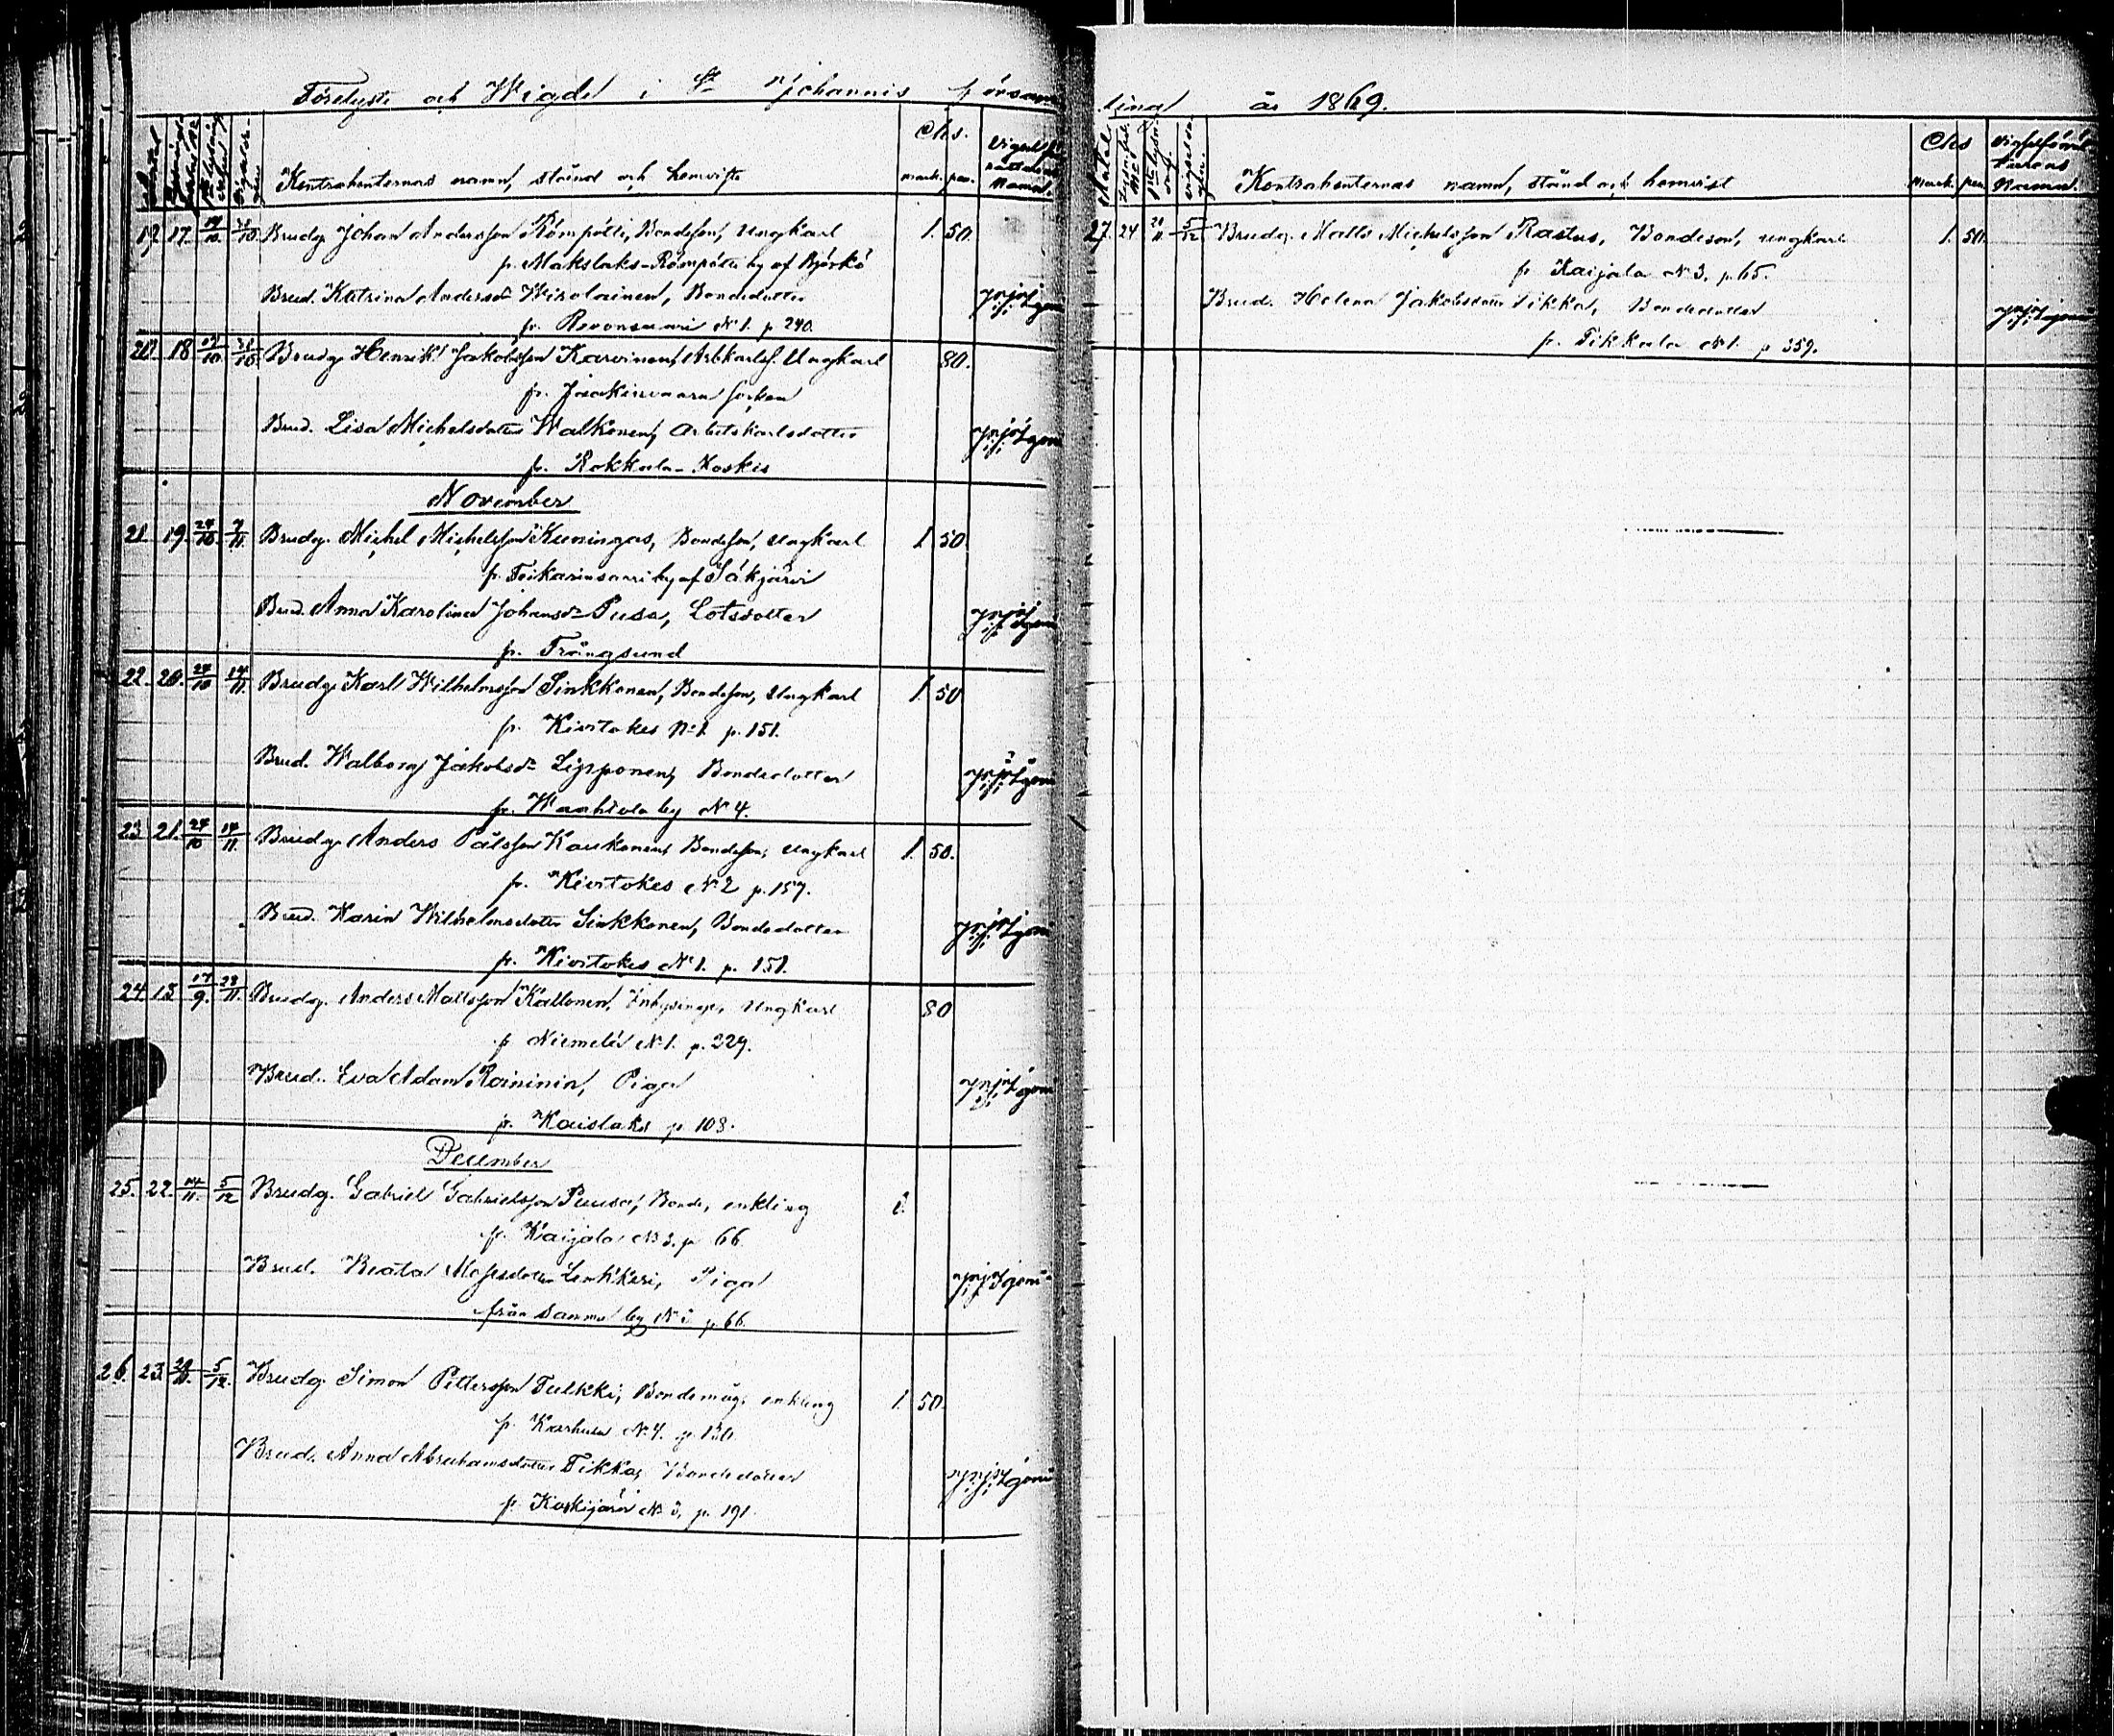 Förelyste och Wigde i St Johannis försam
ling år 1869.
Kontrahenternas namn, stånd och hemvist
Chs.
mark. pen.
19. 17. 17/10. 31/10. Brudg. Johan Andersson Römpötti, Bondeson, Ungkarl 1. 50.
fr. Makslaks-Römpötti by af Björkö
Brud. Katrina Andersdr Wirolainen, Bondedotter
fr. Revonsaari No 1. p 240.
20. 18 17/10. 31/10. Brudg. Henrik Jakobsson Karvinen, Arbkarls. Ungkarl 80.
fr. Jaakinvaara socken
Brud. Lisa Michelsdotter Walkonen, Arbetskarlsdotter
fr. Rokkala-Koskis
November
21. 19. 24/10. 7/11. Brudg. Michel Michelsson Kuningas, Bondeson, Ungkarl 1. 50
fr. Teikarinsaari by af Säkjärvi
Brud. Anna Karolina Johansdr Pusa, Lotsdotter
fr. Trångsund
22. 20. 24/10 14/11. Brudg. Karl Wilhelmsson Sinkkonen, Bondeson, Ungkarl 1. 50
fr. Kivitokes No 1. p. 151.
Brud. Walborg Jakobsdr Lipponen, Bondedotter
fr. Waahtola by No 4.
23. 21. 24/10 14/11. Brudg. Anders Pålsson Kaukonen, Bondeson, Ungkarl 1. 50.
fr. Kivitokes No 2 p. 157.
Brud. Karin Wilhelmsdotter Sinkkonen, Bondedotter
fr. Kivitokes No 1. p. 151.
24. 15 /9. 28/11. Brudg. Anders Mattsson Kallonen, Inhysinge, Ungkarl 80
fr Niemelä No 1. p. 229.
Brud. Eva Adam Raininin, Piga
fr. Kaislaks p 108.
December
25. 22. 14/11. 5/12 Brudg. Gabriel Gabrielsson Puusa, Bonde, enkling
fr. Kaijala No 3. p 66.
Brud. Beata Mosesdotter, Piga
från samma by No 3 p. 66.
26. 23. 5/12. Brudg. Simon Pettersson Tulkki, Bondemåg, enkling 1. 50.
fr. Karhula No 4. p.
Brud. Anna Abrahamsdotter Tikka, Bondedotter
fr. Koskijärvi No 3, p. 191.
Kontrahenternas namn, stånd och hemvist
Chs
mark. pen.
27. 24 21/11 5/12 Brudg. Matts Michelsson Rastas, Bondeson, ungkarl 1. 50.
fr Kaijala No 3. p 65.
Brud. Helena Jakobsdotter Tikka, Bondedotter
fr. Tikkala No 1. p 359.